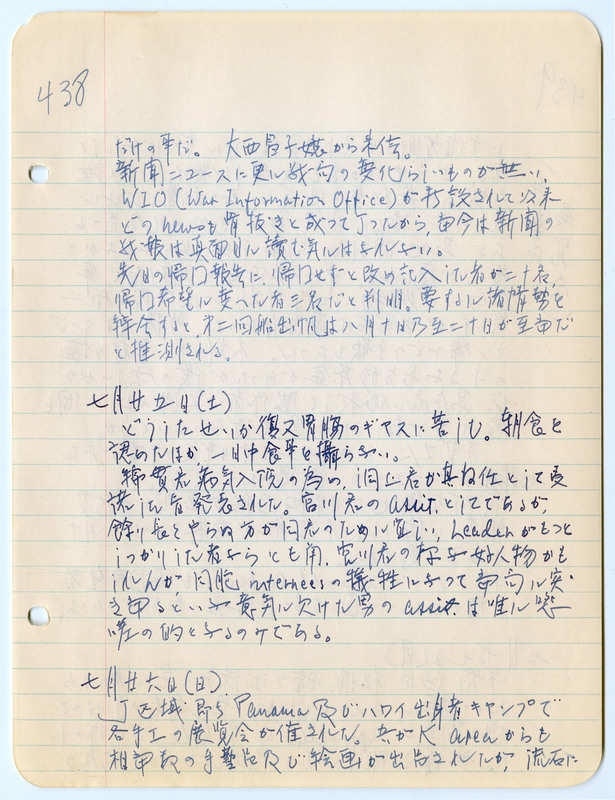 438
だけの事だ。 大西昌子嬢から来信。
新聞ニュースに更に戦局の変化らしいものが無い。
WIO (War Information Office) が新設されて以来
どのnewsも骨抜きと成って了ったから、当今は新聞の
戦報は真面目に読む気にはなれない。
先日の帰国報告に、帰国せずと改め記入した者が二十名、
帰国希望に変へた者三名だと判明。要するに諸情勢を
綜合すると第二回船出帆は八月十日乃至二十日が至当だ
と推測される。
七月廿五日(土)
どうしたせいか復又胃腸のギヤスに苦しむ。朝食を
認めたほか一日中食事を攝らない。
綿貫君病気入院の為め、洞上君が其後任として受
諾した旨発表された。宮川君のassit.としてであるが、
餘り長くやらぬ方が同君のために宜しい。Leaderがもっと
しっかりした者なら とも角、宮川君の様な好人物かも
しれんが、同胞interneesの犠牲によって当局に突
き当るといふ意気に欠けた男のassit.は唯に嘲
の的となるのみである。
七月廿六日(日).
J区域即ちPanama及びハワイ出身者キャンプで
各手工の展覧会が催された。吾がK areaからも
相当数の手藝品及び絵画が出品されたが、流石に